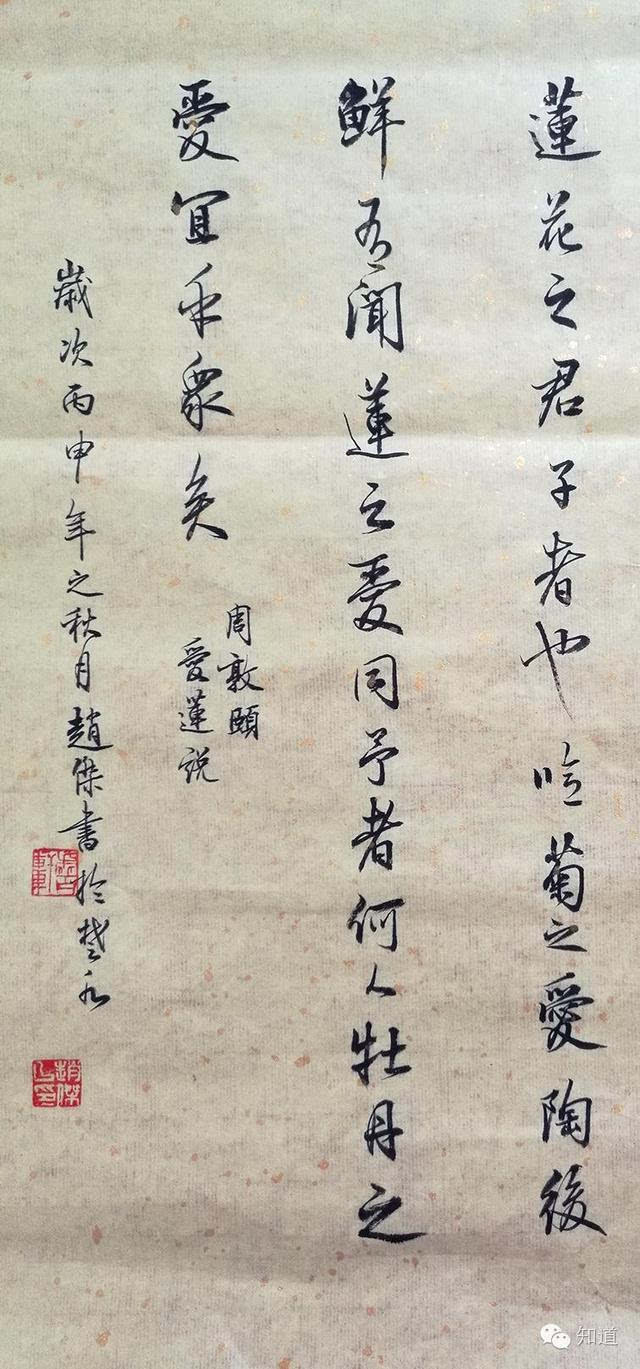 蓮花之君子者也噫菊之愛陶後
鮮有聞蓮之愛同予者何人牡丹之
愛宜乎衆矣
周敦頤
愛蓮説
歲次丙申年之秋月趙傑書於楚水
趙傑之印
知道